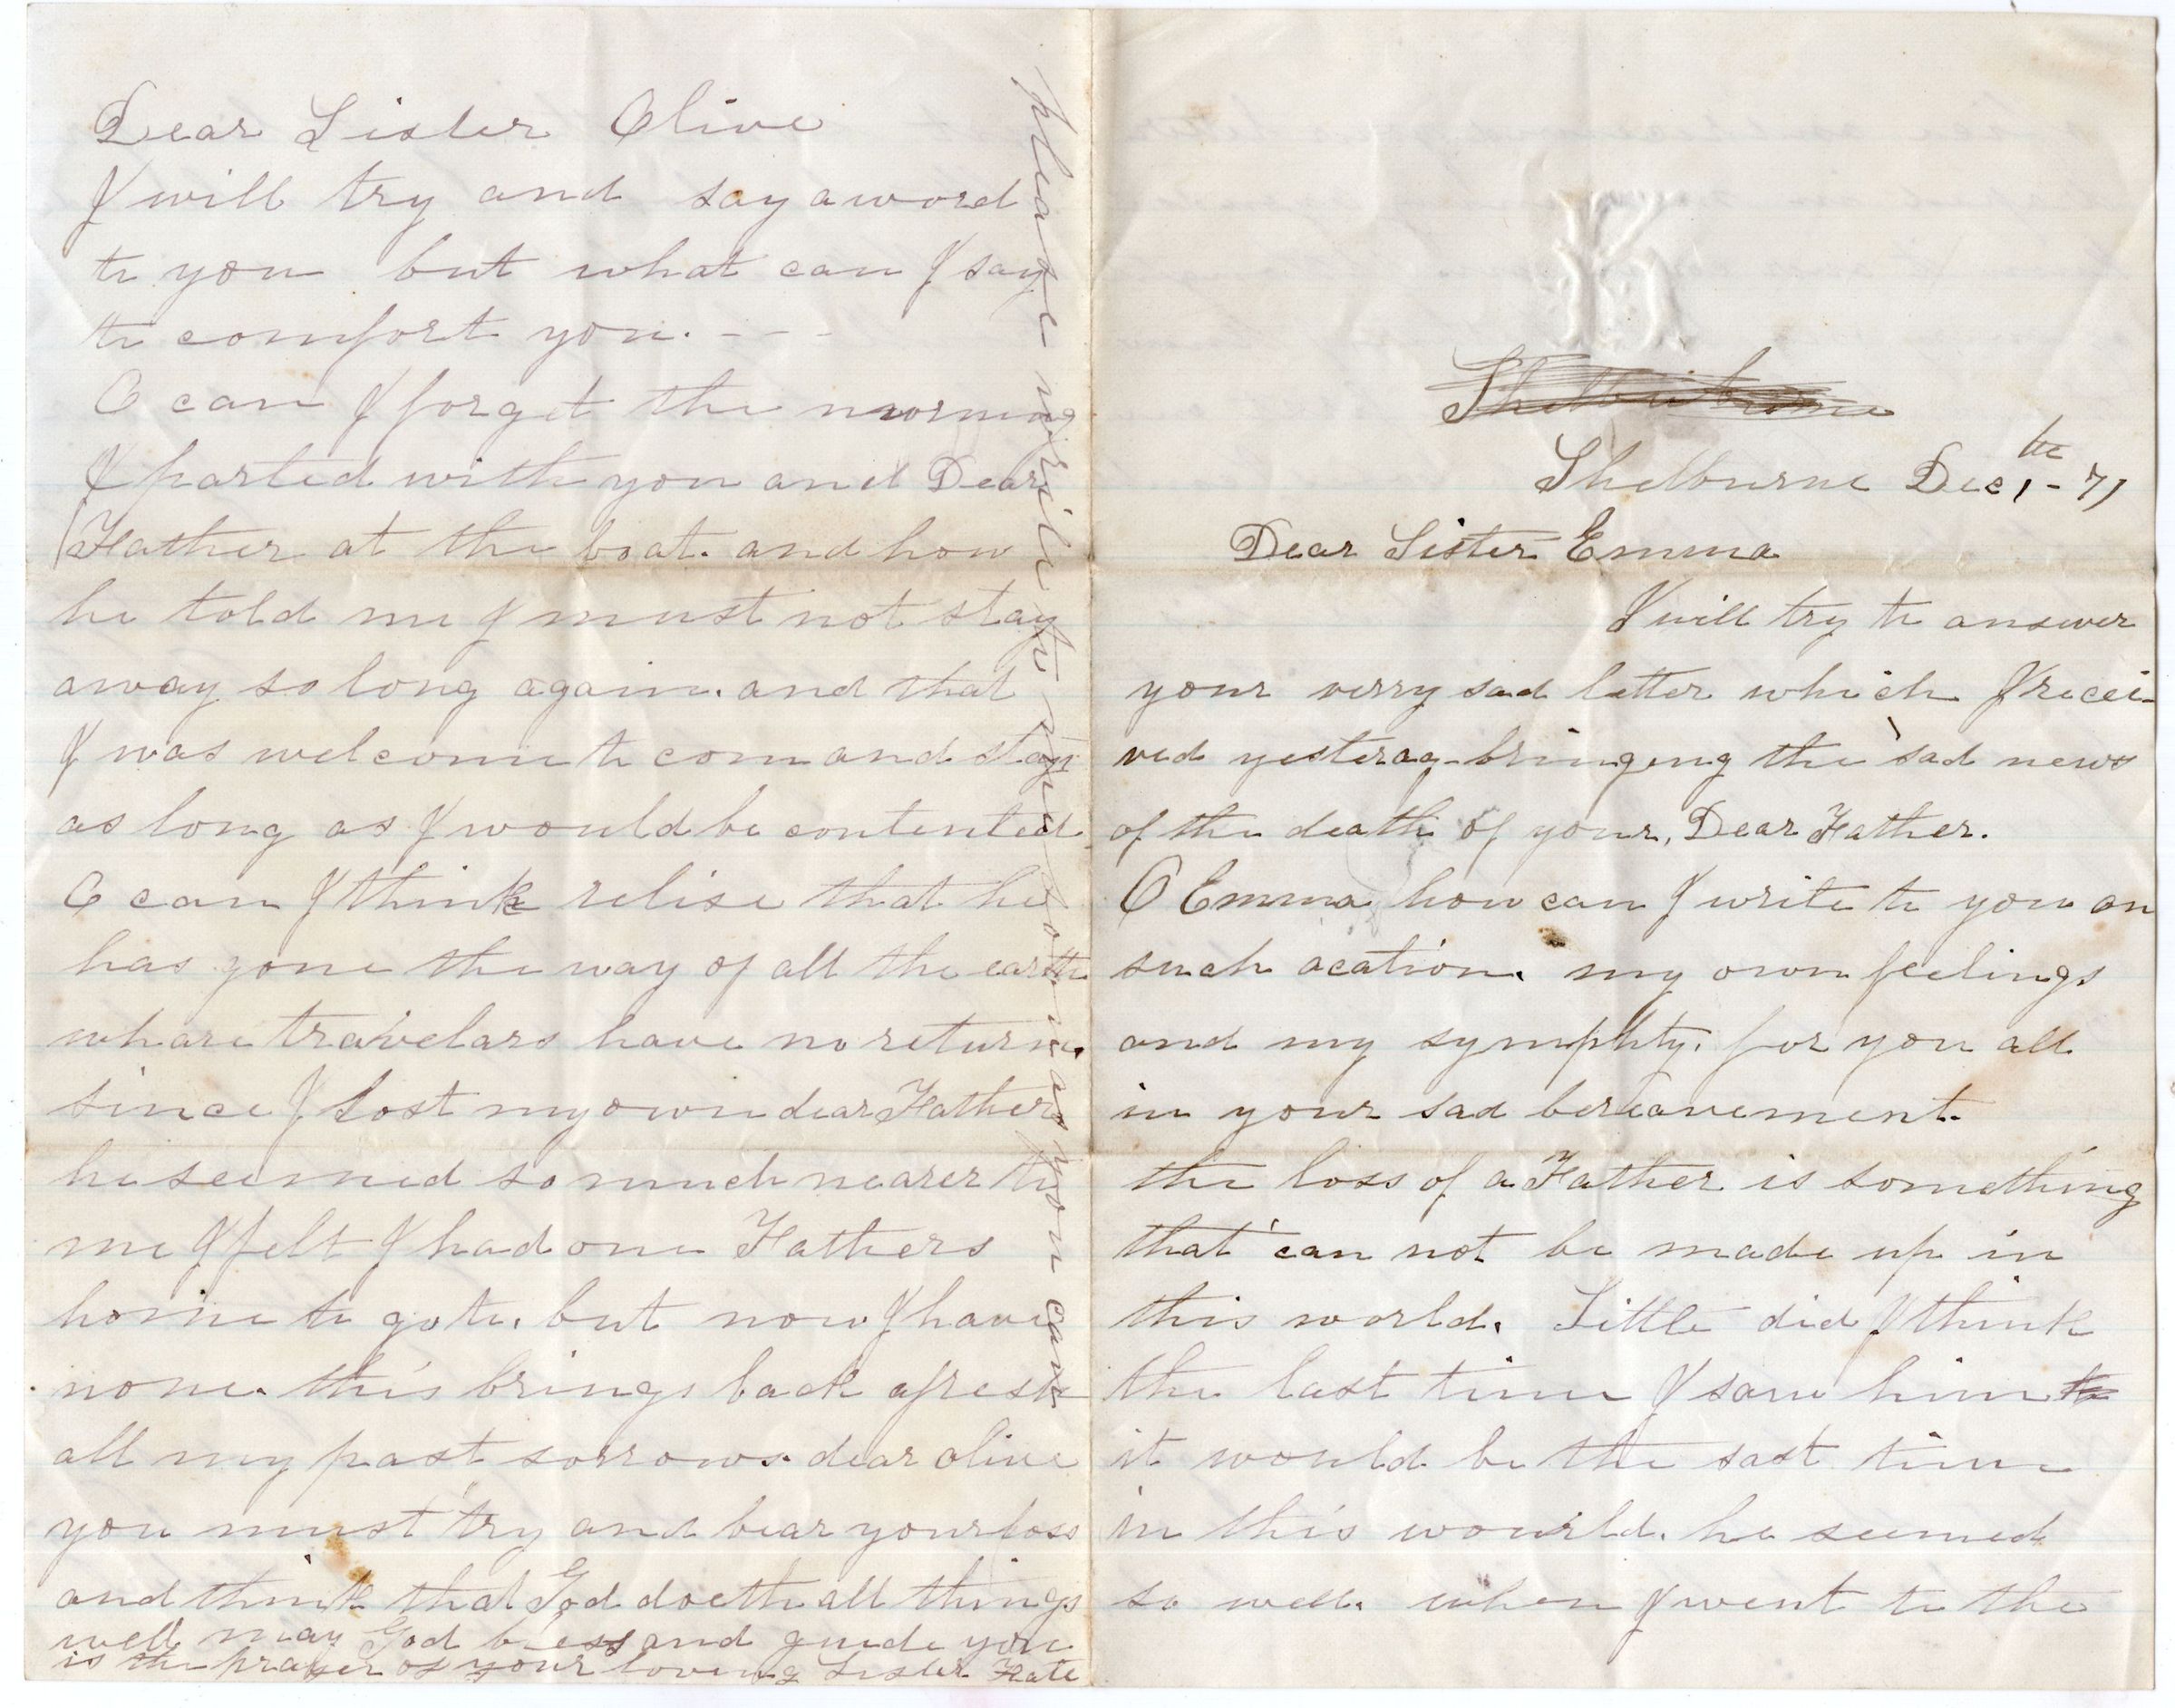 Dear Sister Olive
I will try and say a word
to you but what can I say
to comfort you. - - -
O can I forget the morning
I parted with you and Dear
Father at the boat. and how
he told me I must not stay
away so long again. and that
I was welcome to com and stay
as long as I would be contented
O can I think relise that he
has gone the way of all the earth
whare travelars have no return.
since I lost my own dear Father
he seemed so much nearer to
me I felt I had one Fathers
home to go to. but now I have
none. this brings back afresh
all my past sorrows. dear olive
you must try and bear your loss
and think that God doeth all things
well may God bless and guide you
is the prayer of your loving Sister Kate
please write to me as soon as you can
K
Shelburne Dec 1th - 71
Dear Sister Emma
I will try to answer
your verry sad letter which I recei-
ved yesteray - bringing the sad news
of the death of your, Dear Father.
O Emma how can I write to you on
such acation. my own feelings
and my symphty. for you all
in your sad bereavement.
the loss of a Father is something
that can not be made up in
this world. Little did I think
the last time I saw him to
it would be the last time
in this wourld. he seemed
so well. when I went to the